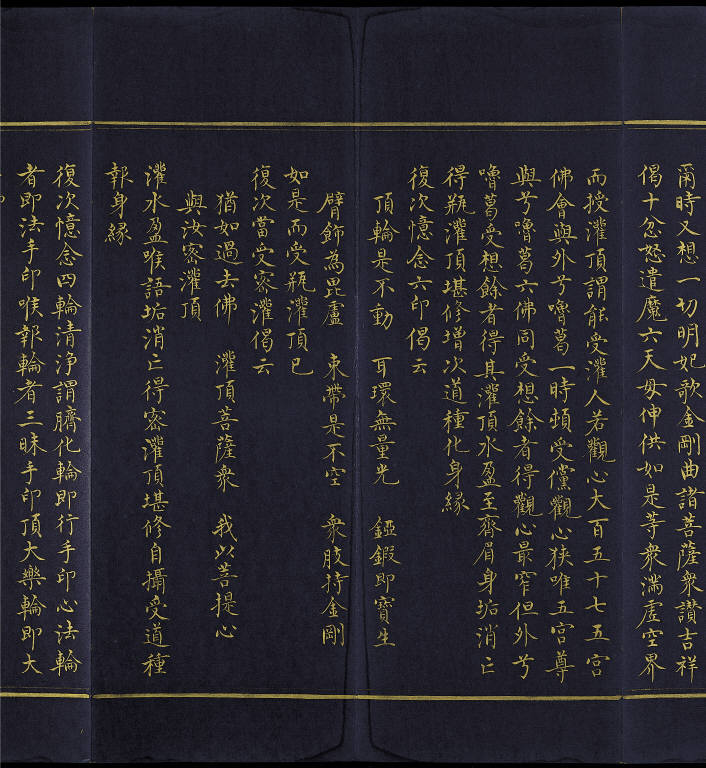 爾時又想一切明妃歌金剛曲諸菩薩衆讚吉祥
偈十忿怒遣魔六天母伸供如是等衆滿虛空界
而授灌頂謂能受灌人若觀心大百五十七五宮
佛會與外兮嚕葛一時頓受儻觀心狹唯五宮尊
與兮嚕葛六佛同受想餘者得觀心最窄但外兮
嚕葛受想餘者得其灌頂水盈至齊眉身垢消亡
得瓶灌頂堪修增次道種化身緣
復次憶念六印偈云
頂輪是不動　耳環無量光　錏鍜即寶生
臂飾為毘盧　束帶是不空　衆肢持金剛
如是而受瓶灌頂已
復次當受密灌偈云
猶如過去佛　灌頂菩薩衆　我以菩提心
與汝密灌頂
灌水盈喉語垢消亡得密灌頂堪修自攝受道種
報身緣
復次憶念四輪清淨謂臍化輪即行手印心法輪
者即法手印喉報輪者三昧手印頂大樂輪即大